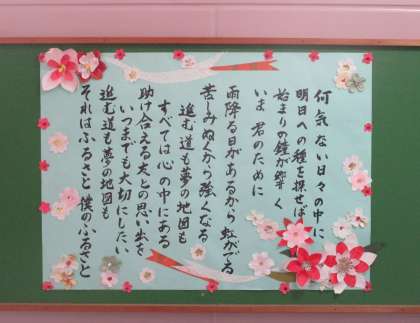 何気ない日々の中に
明日への種を探せば
始まりの鐘が響く
いま 君のために
雨降る日があるから虹がでる
苦しみぬくから強くなる
進む道も夢の地図も
すべては心の中にある
助け合える友との思い出を
いつまでも大切にしたい
進む道も夢の地図も
それはふるさと 僕のふるさと